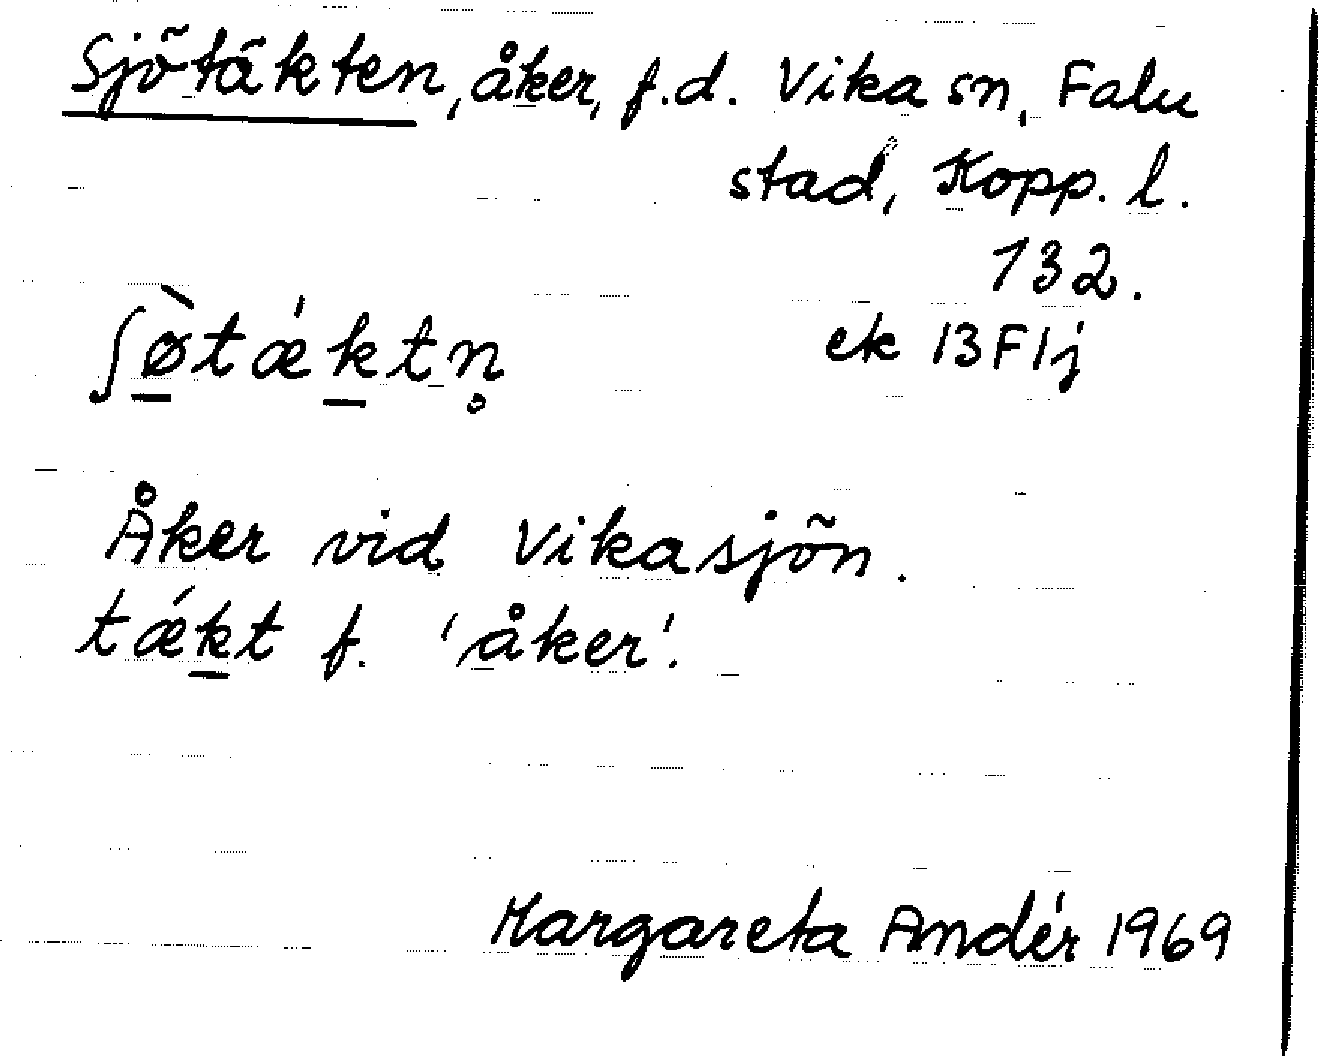 Sjötäkten, åker, f.d. Vika sn, Falu
stad, Kopp. l.
132.
ek 13F1j
ʃø̠̀tǽk̠tn̥
Åker vid Vikasjön.
tǽk̠t f. 'åker'.
Margareta Andér 1969